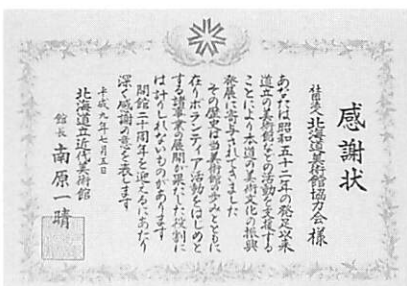 感謝状
社団法人北海道美術館協力会様
あなたは昭和五十二年の発足以来
道立の美術館などの活動を支援する
ことにより本道の美術文化の振興
発展に寄与されてきました
その歴史は当美術館の歩みとともに
在りボランティア活動をはじめと
する諸事業の展開が果たした役割に
は計りしれないものがあります
開館二十周年を迎えるにあたり
深く感謝の意を表します
平成九年七月五日
北海道立近代美術館
館長 南原一晴